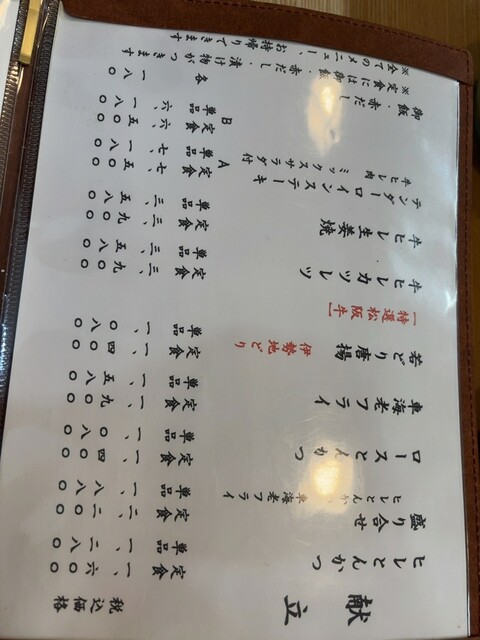 献立
税込価格
ヒレとんかつ
定食 一、六〇〇
単品 一、二八〇
盛り合せ
ヒレとんかつ、車海老フライ
定食 二、二〇〇
単品 一、八八〇
ロースとんかつ
定食 一、四〇〇
単品 一、〇八〇
車海老フライ
定食 一、九〇〇
単品 一、五八〇
若どり唐揚
伊勢地どり
定食 一、四〇〇
単品 一、〇八〇
【特選松阪牛】
牛ヒレカツレツ
定食 三、九〇〇
単品 三、五八〇
牛ヒレ生姜焼
定食 三、九〇〇
単品 三、五八〇
テンダーロインステーキ
牛ヒレ肉 ミックスサラダ付
A 定食 七、五〇〇
単品 七、一八〇
B 定食 六、五〇〇
単品 六、一八〇
御飯・赤だし
各 一八〇
※定食には御飯・赤だし・漬け物がつきます
※全てのメニュー、お持帰りできます